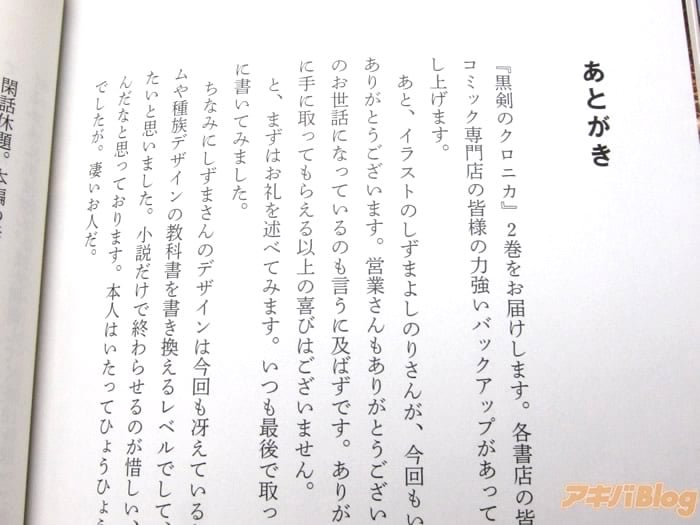 あとがき
『黒剣のクロニカ』２巻をお届けします。各書店の皆
コミック専門店の皆様の力強いバックアップがあって
し上げます。
あと、イラストのしずまよしのりさんが、今回もい
ありがとうございます。営業さんもありがとうござい
のお世話になっているのも言うに及ばずです。ありが
に手に取ってもらえる以上の喜びはございません。
と、まずはお礼を述べてみます。いつも最後で取っ
に書いてみました。
ちなみにしずまさんのデザインは今回も冴えている
ムや種族デザインの教科書を書き換えるレベルでして、
たいと思いました。小説だけで終わらせるのが惜しい、
んだなと思っております。本人はいたってひょうひょう
でしたが。凄いお人だ。
閑話休題。本編の
アキバBlog